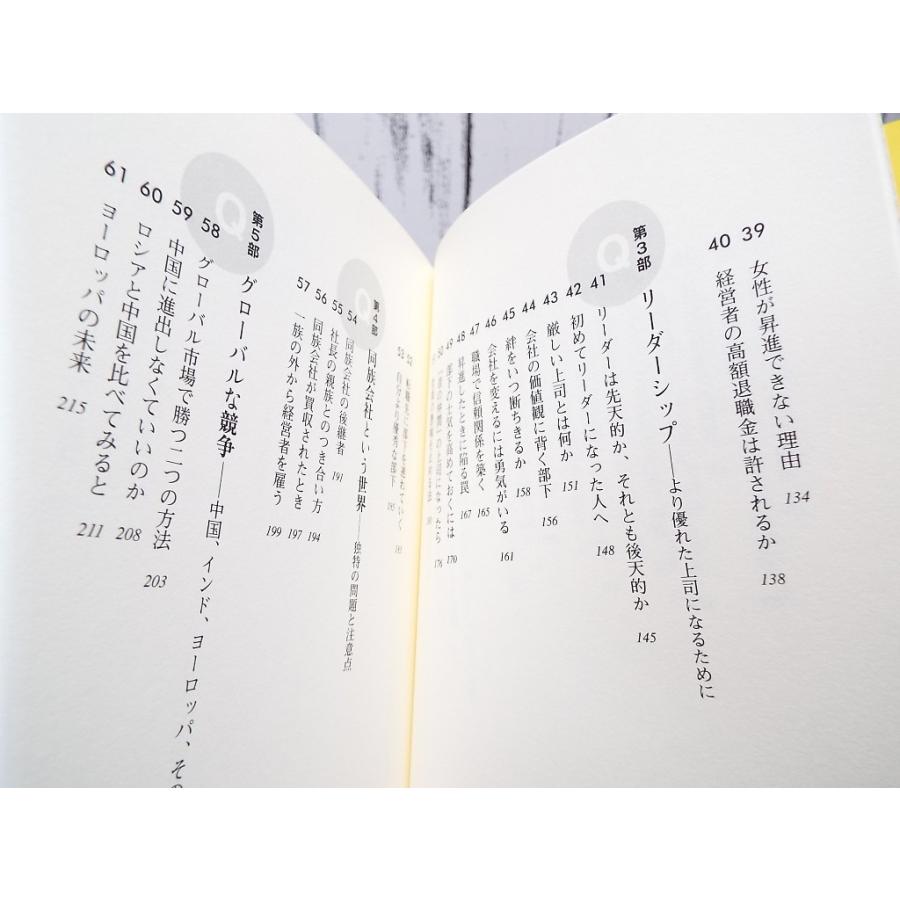 39 女性が昇進できない理由 134
40 経営者の高額退職金は許されるか 138
Q
第3部 リーダーシップ——より優れた上司になるために
41 リーダーは先天的か、それとも後天的か 145
42 初めてリーダーになった人へ 148
43 厳しい上司とは何か 151
44 会社の価値観に背く部下 156
45 絆をいつ断ちきるか 158
46 会社を変えるには勇気がいる 161
47 職場で信頼関係を築く 165
48 昇進したときに陥る罠 167
49 部下の士気を高めておくには 170
50 「昔の仲間」の上司になったら 176
52
53 自分より優秀な部下 195
第4部 同族会社という世界——独特の問題と注意点
54 同族会社の後継者 191
55 社長の親族とのつき合い方 194
56 同族会社が買収されたとき 197
57 一族の外から経営者を雇う 199
Q
第5部 グローバルな競争——中国、インド、ヨーロッパ、その
58 グローバル市場で勝つ二つの方法 203
59 中国に進出しなくていいのか 208
60 ロシアと中国を比べてみると 211
61 ヨーロッパの未来 215